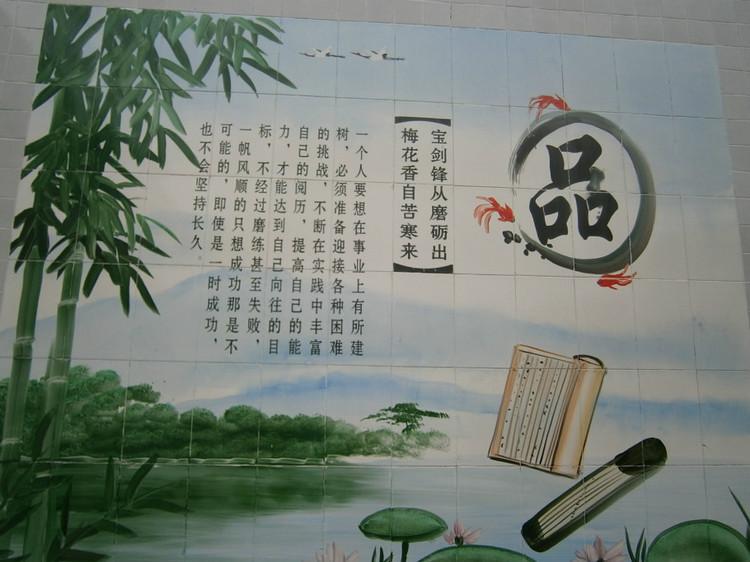 品
宝剑锋从磨砺出
梅花香自苦寒来
一个人要想在事业上有所建
树，必须准备迎接各种困难
的挑战，不断在实践中丰富
自己的阅历，提高自己的能
力，才能达到自己向往的目
标，不经过磨练甚至失败，
一帆风顺的只想成功那是不
可能的，即使是一时成功，
也不会坚持长久。